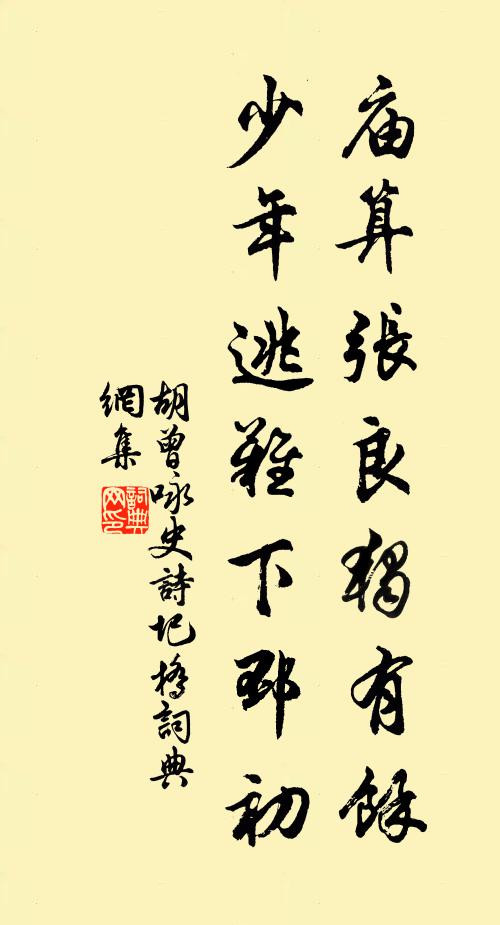 庙算張良獨有餘
少年逃難下邳初
胡曾咏史詩圯橋詞典
網集
詞典网印